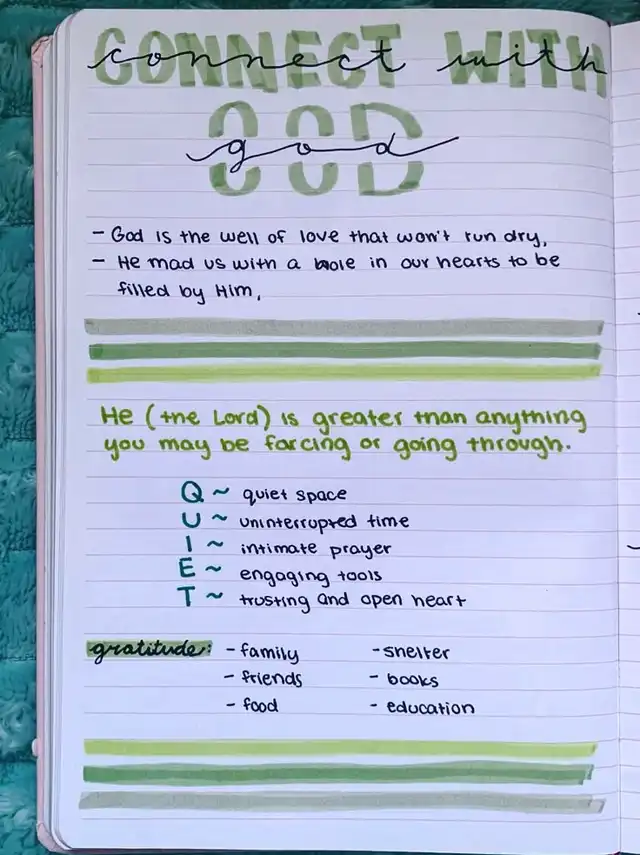 CONNECT WITH
connect with
GOD
god
- God is the well of love that won't run dry,
- He mad us with a hole in our hearts to be
filled by Him,
He (the Lord) is greater than anything
you may be farcing or going through.
Q ~ quiet space
U ~ uninterrupted time
I ~ intimate prayer
E ~ engaging tools
T ~ trusting and open heart
gratitude: - family - shelter
- friends - books
- food - education